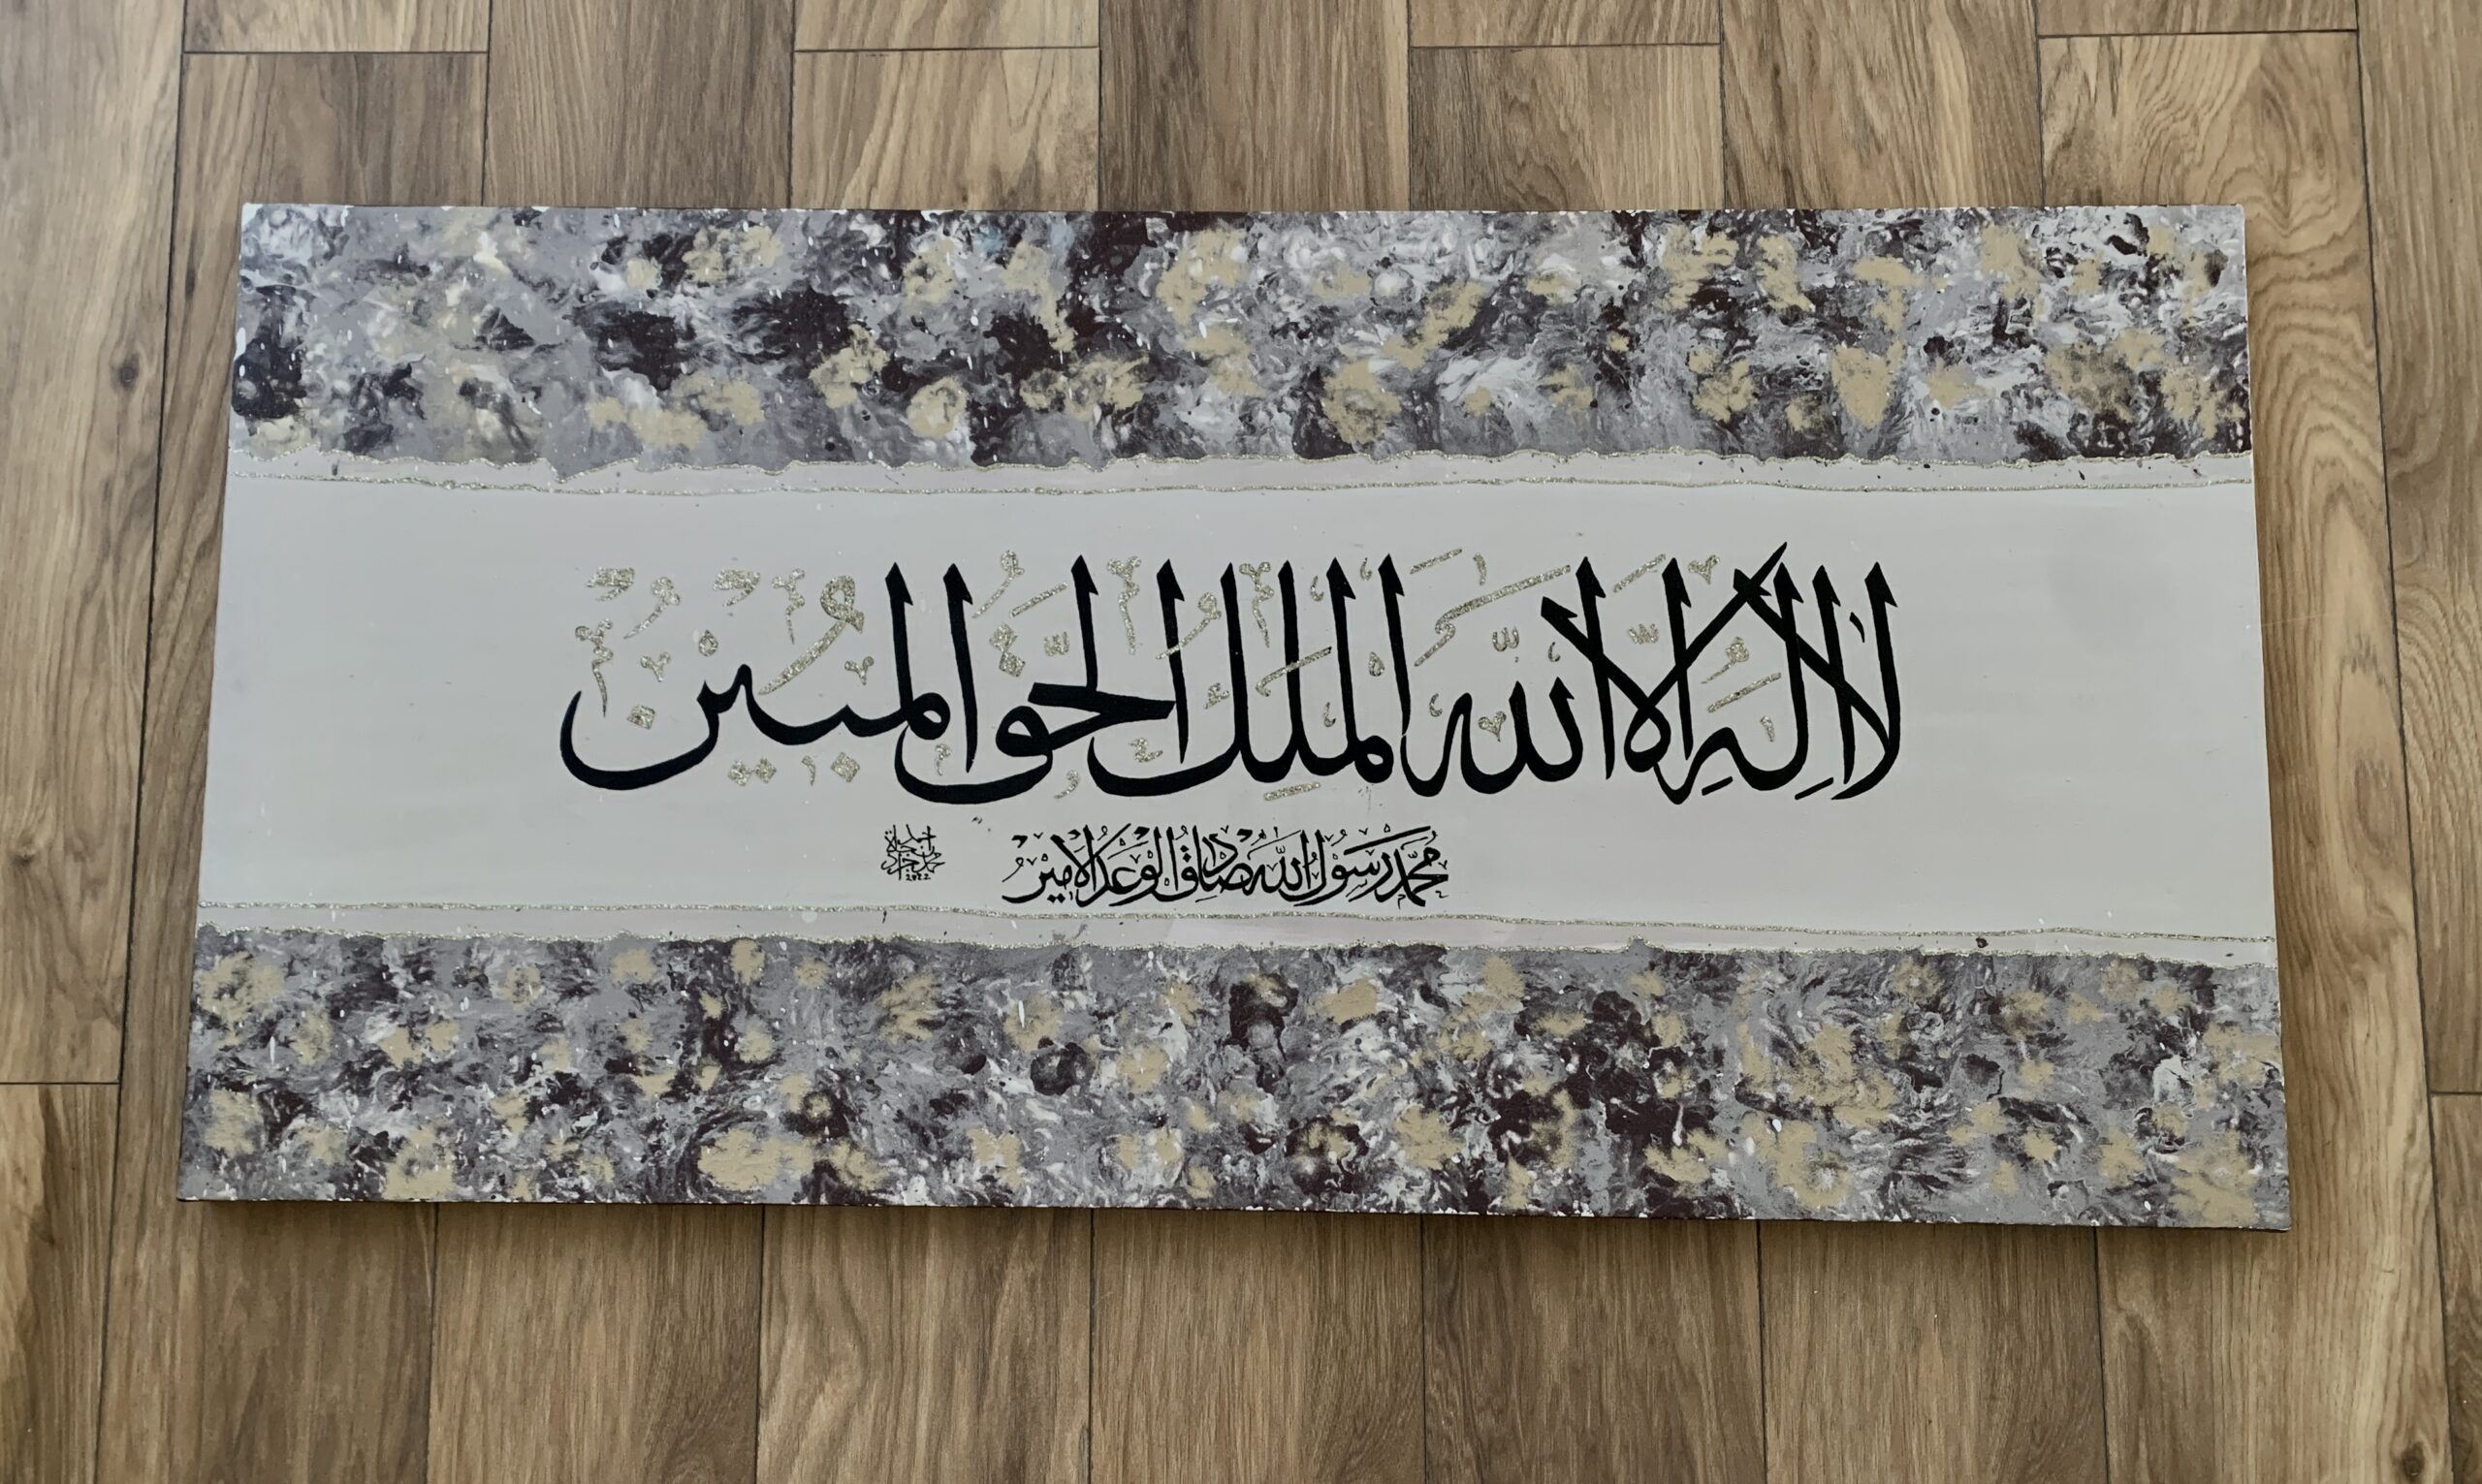 لا اله الا الله الملك الحق المبين
محمد رسول الله صادق الوعد الامين
2022